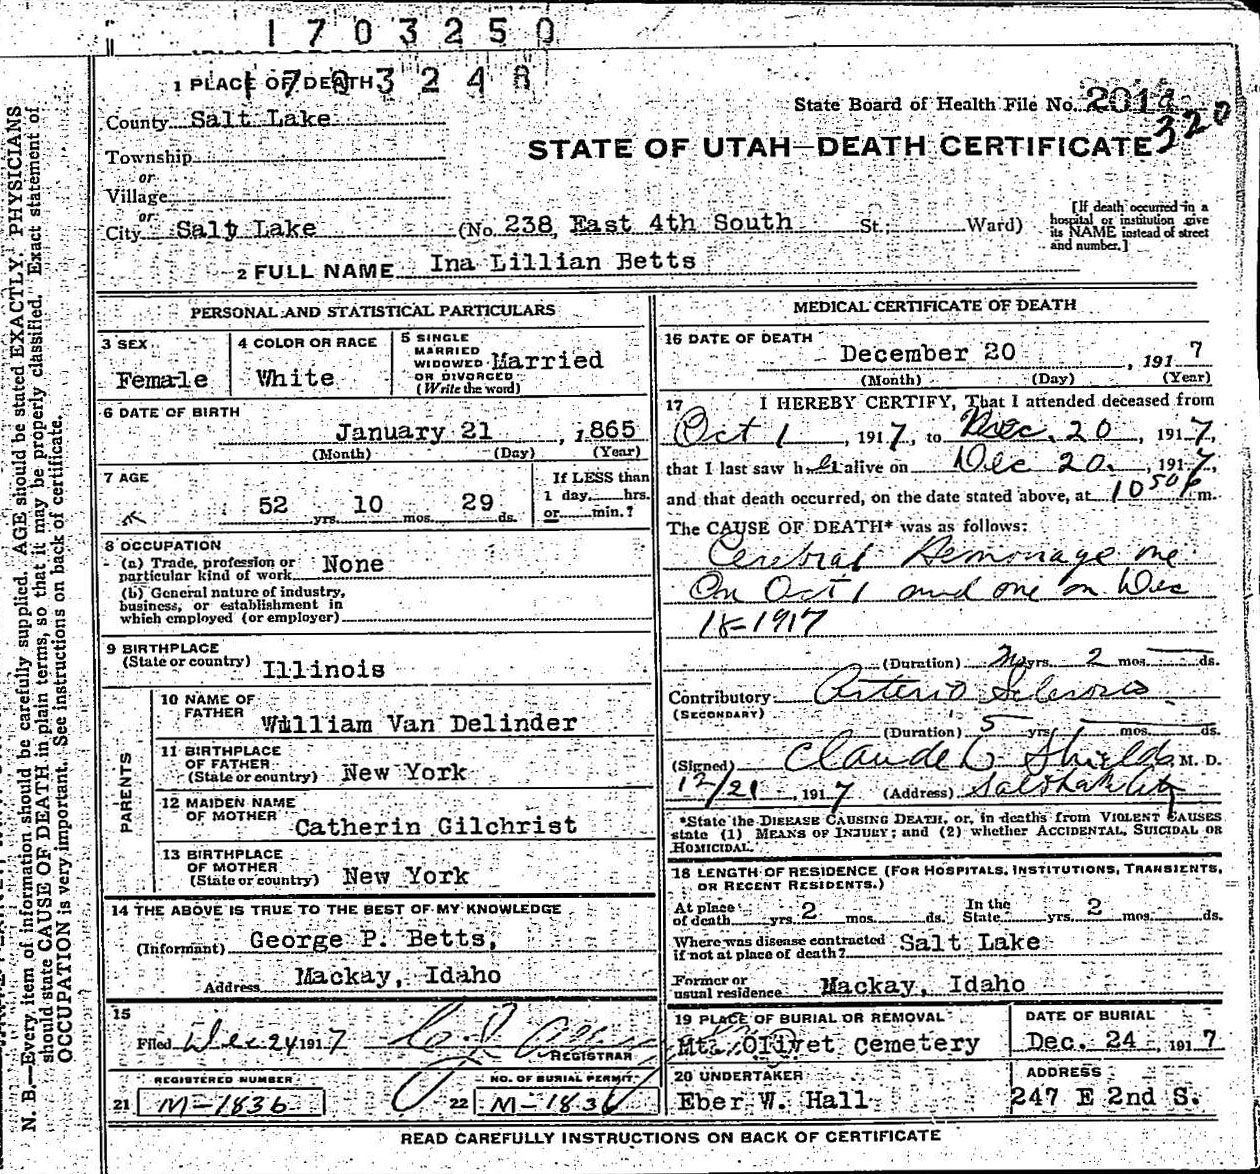 1703250
1 PLACE OF DEATH 1703248
State Board of Health File No. 2014
320
County Salt Lake
STATE OF UTAH—DEATH CERTIFICATE
Township
or
Village
or
City Salt Lake (No. 238, East 4th South St.; Ward)
[If death occurred in a
hospital or institution give
its NAME instead of street
and number.]
2 FULL NAME Ina Lillian Betts
PERSONAL AND STATISTICAL PARTICULARS
3 SEX
Female
4 COLOR OR RACE
White
5 SINGLE
MARRIED
WIDOWED
OR DIVORCED
(Write the word)
Married
6 DATE OF BIRTH
January 21, 1865
(Month) (Day) (Year)
7 AGE
52 yrs. 10 mos. 29 ds.
If LESS than
1 day, hrs.
or min.?
8 OCCUPATION
(a) Trade, profession or
particular kind of work None
(b) General nature of industry,
business, or establishment in
which employed (or employer)
9 BIRTHPLACE
(State or country) Illinois
PARENTS
10 NAME OF
FATHER
William Van Delinder
11 BIRTHPLACE
OF FATHER
(State or country) New York
12 MAIDEN NAME
OF MOTHER
Catherin Gilchrist
13 BIRTHPLACE
OF MOTHER
(State or country) New York
14 THE ABOVE IS TRUE TO THE BEST OF MY KNOWLEDGE
(Informant) George P. Betts,
Address Mackay, Idaho
15
Filed Dec 24 1917
REGISTRAR
REGISTERED NUMBER
21 M-1836
NO. OF BURIAL PERMIT
22 M-1836
MEDICAL CERTIFICATE OF DEATH
16 DATE OF DEATH
December 20, 1917
(Month) (Day) (Year)
17 I HEREBY CERTIFY, That I attended deceased from
Oct 1, 1917, to Dec. 20, 1917,
that I last saw her alive on Dec 20, 1917,
and that death occurred, on the date stated above, at 10 50 P m.
The CAUSE OF DEATH* was as follows:
Cerebral Hemorrage one
On Oct 1 and one on Dec
18-1917
(Duration) yrs. 2 mos. ds.
Contributory Arterio Sclerosis
(SECONDARY)
(Duration) 5 yrs. mos. ds.
(Signed) Claude L Shields, M. D.
12/21, 1917 (Address) Salt Lake City
*State the DISEASE CAUSING DEATH, or, in deaths from VIOLENT CAUSES
state (1) MEANS OF INJURY; and (2) whether ACCIDENTAL, SUICIDAL OR
HOMICIDAL.
18 LENGTH OF RESIDENCE (FOR HOSPITALS, INSTITUTIONS, TRANSIENTS,
OR RECENT RESIDENTS.)
At place
of death yrs. 2 mos. ds. In the
State yrs. 2 mos. ds.
Where was disease contracted
if not at place of death? Salt Lake
Former or
usual residence Mackay, Idaho
19 PLACE OF BURIAL OR REMOVAL
Mt. Olivet Cemetery
DATE OF BURIAL
Dec. 24, 1917
20 UNDERTAKER
Eber W. Hall
ADDRESS
247 E 2nd S.
READ CAREFULLY INSTRUCTIONS ON BACK OF CERTIFICATE
N. B.—Every item of information should be carefully supplied. AGE should be stated EXACTLY. PHYSICIANS
should state CAUSE OF DEATH in plain terms, so that it may be properly classified. Exact statement of
OCCUPATION is very important. See instructions on back of certificate.